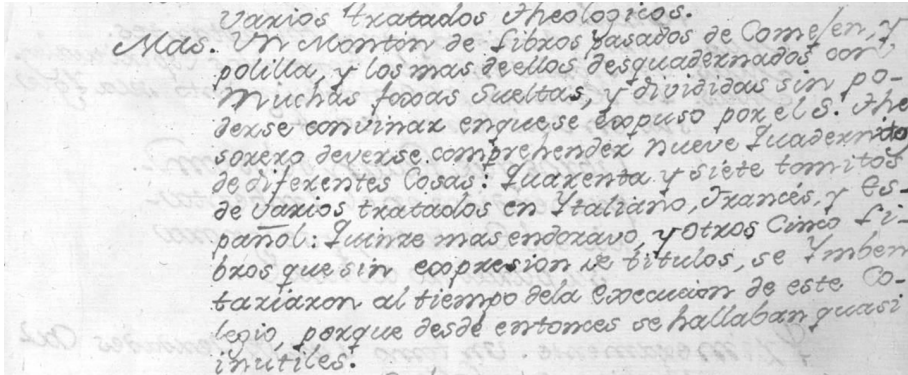 varios tratados theologicos.
Mas. Un Monton de Libros pasados de Comejen, y
polilla, y los mas deellos desquadernados con
Muchas foxas Sueltas, y divididas sin po-
derse convinar enque, se expuso por el S.r The
sorero deverse comprehender nueve Quadernitos
de diferentes Cosas: Quarenta y siete tomitos
de varios tratados en Ytaliano, Francés, y Es-
pañol: Quinze mas endozavo, y otros Cinco Li-
bros que sin expresion de titulos, se Ymben
tariaron al tiempo dela Execucion de este Co-
legio, porque desde entonces se hallaban quasi
inutiles.